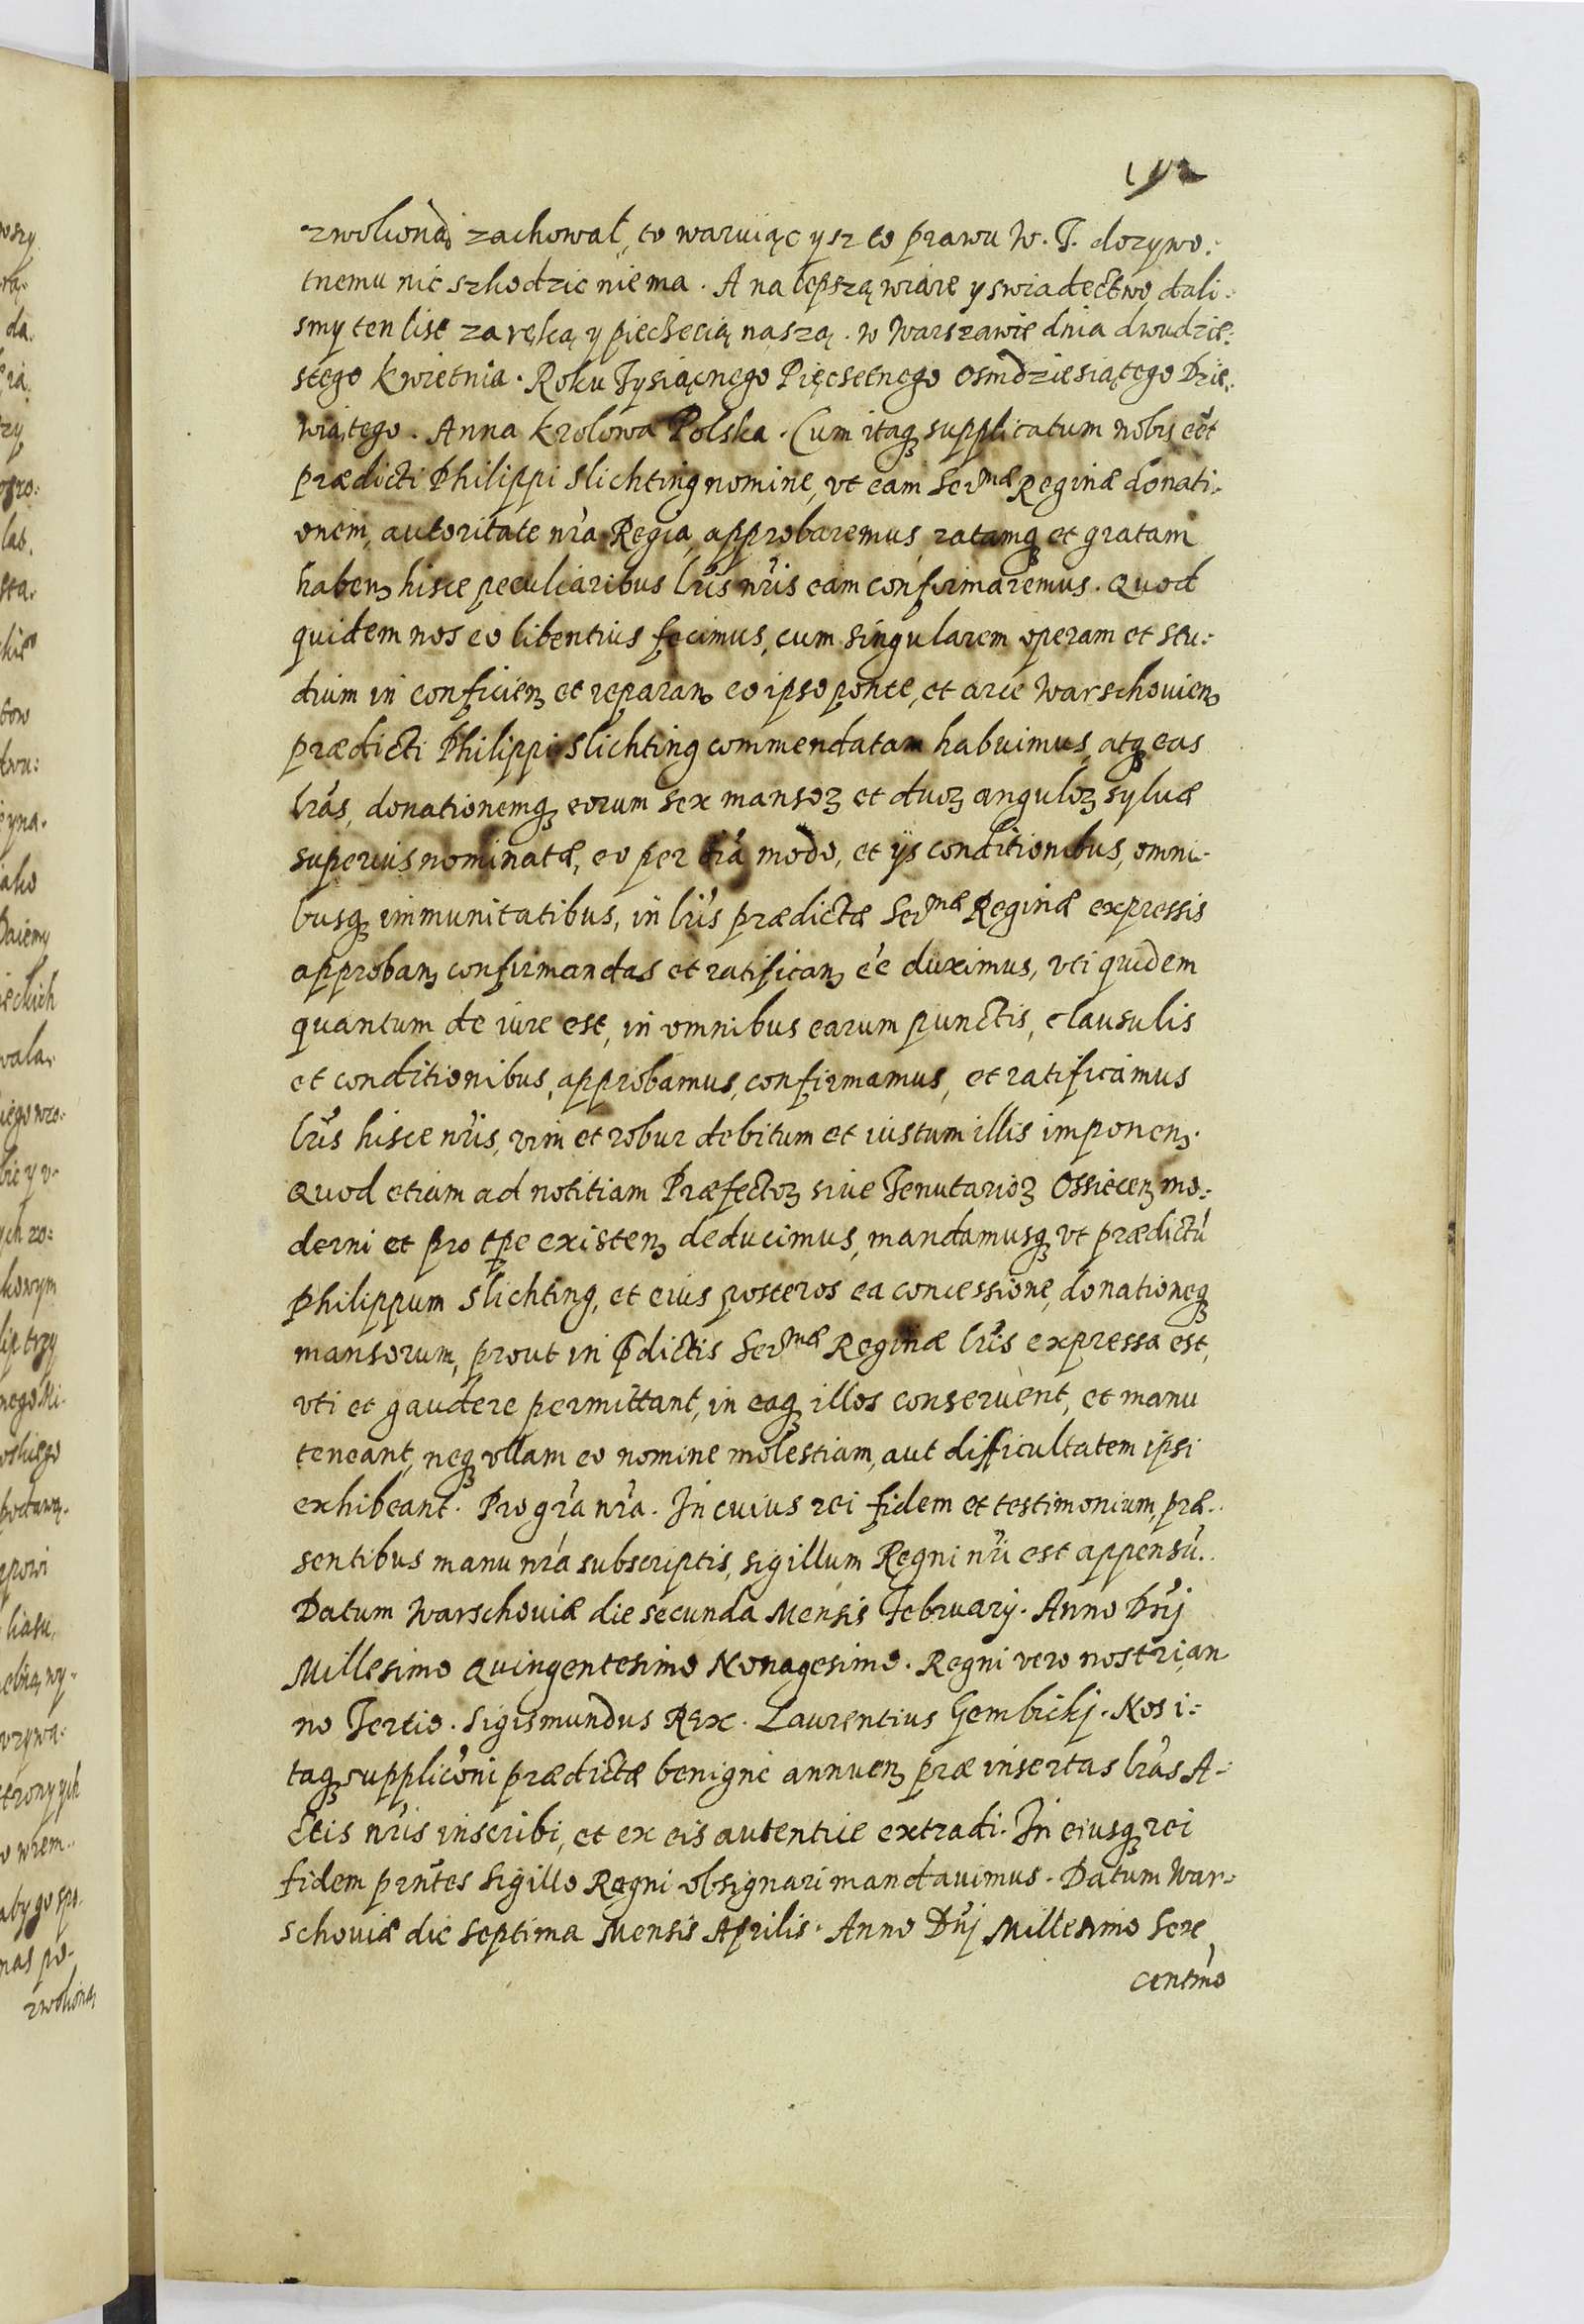 zwoloną zachował, to waruiąc ysz to prawu W. J. dozywo:
tnemu nic szkodzic niema. A na lepszą wiare y swiadectwo dali:
smy ten list za ręką y pieczęcią naszą. w Warszawie dnia dwudzie:
stego kwietnia. Roku Tysiącnego Pięcsetnego Osmdziesiątego Dzie:
wiątego. Anna krolowa Polska. Cum itaq supplicatum nobis eet
prædicti Philippi Slichting nomine, vt eam Serᵐᵃᵉ Reginæ donati:
onem, autoritate nra Regia, approbaremus, ratamq et gratam
haben, hisce peculiaribus lris nris eam confirmaremus. Quod
quidem nos eo libentius fecimus, cum singularem operam et stu:
dium in conficien et reparan eo ipso ponte, et arce Warschouien
prædicti Philippi Slichting commendatam habuimus, atq eas
lras, donationemq eorum sex mansoꝝ et duoꝝ anguloꝝ syluæ
superius nominatæ, eo per oia modo, et ijs conditionibus, omni:
busq immunitatibus, in lris prædictæ Serᵐᵃᵉ Reginæ expressis
approban, confirmandas et ratifican ee duximus, vti quidem
quantum de iure est, in omnibus earum punctis, clausulis
et conditionibus, approbamus, confirmamus, et ratificamus
lris hisce nris, vim et robur debitum et iustum illis imponen.
Quod etiam ad notitiam Præfectoꝝ siue Tenutarioꝝ Ossiecen mo:
derni et pro tpe existen deducimus, mandamusq vt prædictu
Philippum Slichting, et eius posteros ea concessione, donationeq
mansorum, prout in pdictis Serᵐᵃᵉ Reginæ lris expressa est,
vti et gaudere permittant, in eaq illos conseruent, et manu
teneant, neq vllam eo nomine molestiam, aut difficultatem ipsi
exhibeant. Pro gra nra. In cuius rei fidem et testimonium, præ:
sentibus manu nra subscriptis, sigillum Regni nri est appensu.
Datum Warschouiæ die secunda Mensis February. Anno Dnj
Millesimo Quingentesimo Nonagesimo. Regni vero nostri, an
no Tertio. Sigismundus Rex. Laurentius Gembickj. Nos i:
taq, suppliconi prædictæ benigne annuen, præinsertas lras A:
ctis nris inscribi, et ex eis autentice extradi. In eiusq rei
fidem pntes Sigillo Regni obsignari mandauimus. Datum War:
schouiæ die Septima Mensis Aprilis. Anno Dnj Millesimo Sex
centmo